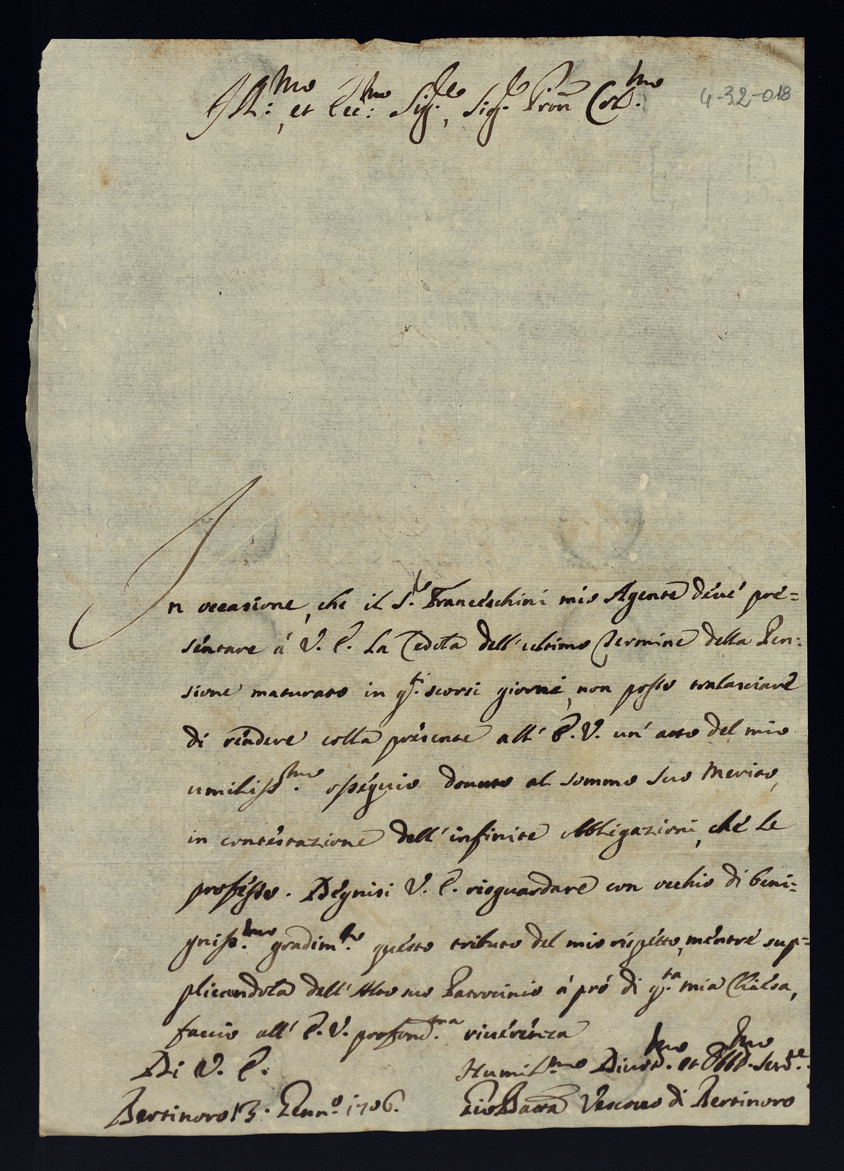 Ill:mo et Ecc:mo Sig:re, Sig:re Pron Col:mo
4-32-018
In occasione, che il S.r Franceschini mio Agente deve pre=
sentare à V. E. la Cedola dell'ultimo Termine della Pen=
sione maturato in q.ti scorsi giorni, non posso tralasciare
di rendere colla presente all' E. V. un' atto del mio
umiliss.mo ossequio dovuto al sommo suo Merito,
in contestazione dell'infinite obbligazioni, che le
professo. Degnisi V. E. risguardare con occhio di beni=
gniss.mo gradim.to questo tributo del mio rispetto, mentre sup=
plicandola dell'Alto suo Patrocinio à prò di q.ta mia Chiesa,
faccio all' E. V. profond.ma riverenza
Di V. E.
Humil.mo Divot.mo et Obb.mo Serv.re
Bertinoro 13. Genn.o 1706.
Gio Batta Vescovo di Bertinoro